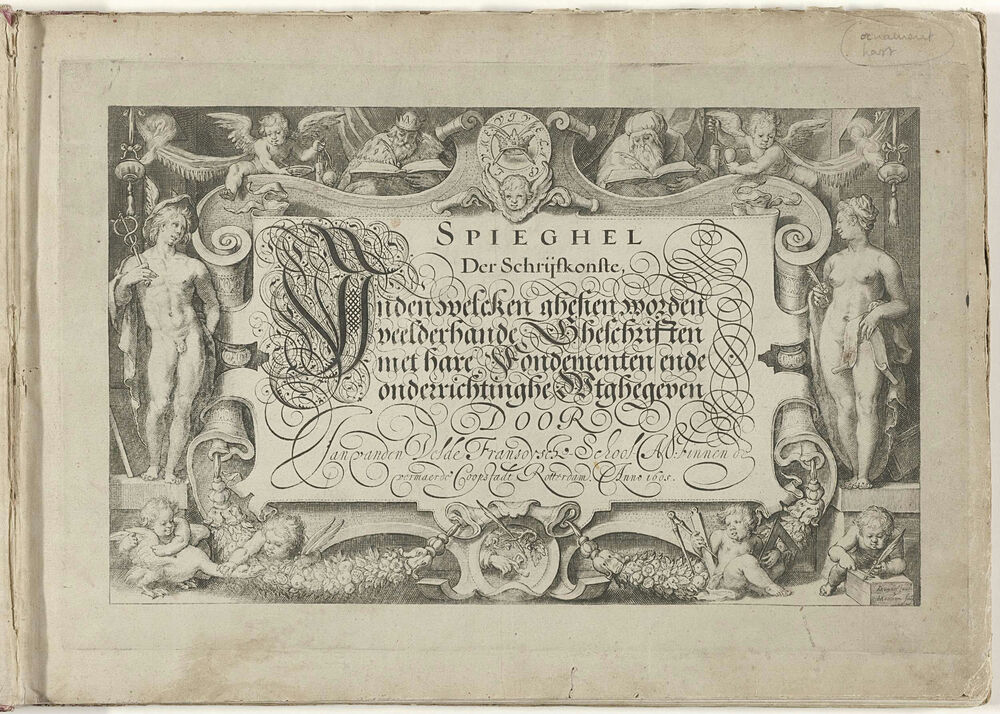 ornament
SPIEGHEL
Der Schrijfkonste,
Inden welcken ghesien worden
veelderhande Gheschriften
met hare Fondementen ende
onderrichtinghe Wtghegeven
DOOR
Jan vanden Velde Fransoysche School Mr. binnen de
vermaerde Coopstadt Rotterdam. Anno 1605.